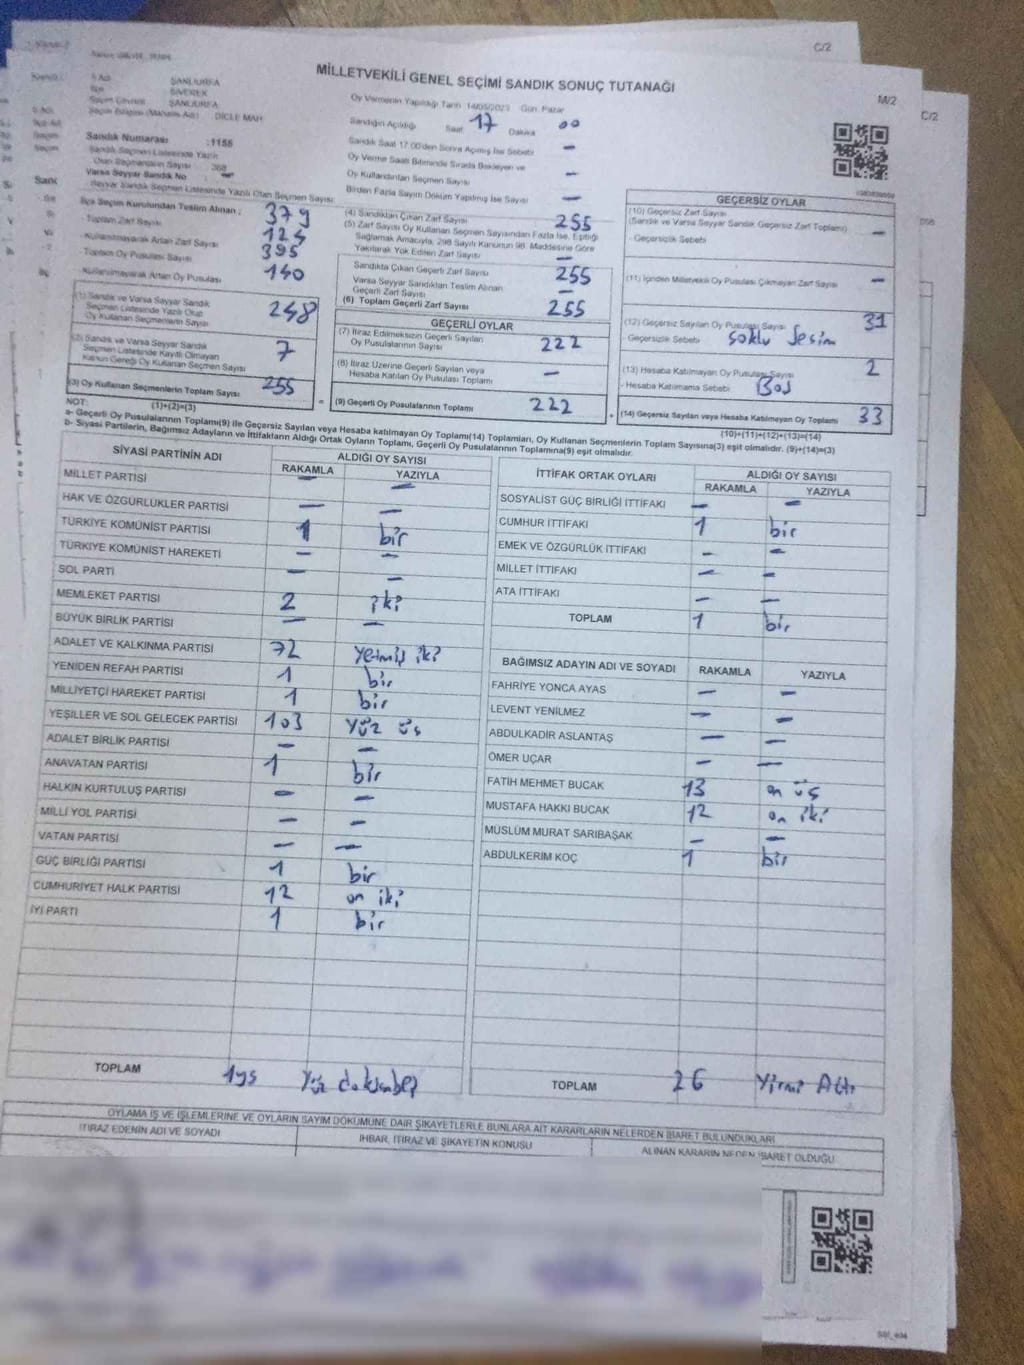 C/2
M/2
C/2
MİLLETVEKİLİ GENEL SEÇİMİ SANDIK SONUÇ TUTANAĞI
İl Adı : ŞANLIURFA
SİVEREK
Seçim Çevresi : ŞANLIURFA
DİCLE MAH
Oy Vermenin Yapıldığı Tarih 14/05/2023 Gün: Pazar
Sandığın Açıldığı Saat 17 Dakika 00
Sandık Numarası : 1155
Sandık Seçmen Listesinde Yazılı
Olan Seçmenlerin Sayısı : 368
Varsa Seyyar Sandık No : –
Seyyar Sandık Seçmen Listesinde Yazılı Olan Seçmen Sayısı
Sandık Saat 17.00'den Sonra Açılmış İse Sebebi –
Oy Verme Saati Bitiminde Sırada Bekleyen ve
Oy Kullandırılan Seçmen Sayısı –
Birden Fazla Sayım Döküm Yapılmış İse Sayısı –
İlçe Seçim Kurulundan Teslim Alınan :
Toplam Zarf Sayısı 379
Kullanılmayarak Artan Zarf Sayısı 124
Toplam Oy Pusulası Sayısı 395
Kullanılmayarak Artan Oy Pusulası 140
(1) Sandık ve Varsa Seyyar Sandık
Seçmen Listesinde Yazılı Olup
Oy Kullanan Seçmenlerin Sayısı 248
(2) Sandık ve Varsa Seyyar Sandık
Seçmen Listesinde Kayıtlı Olmayan
Kanun Gereği Oy Kullanan Seçmen Sayısı 7
(3) Oy Kullanan Seçmenlerin Toplam Sayısı 255
(1)+(2)=(3)
(4) Sandıktan Çıkan Zarf Sayısı 255
(5) Zarf Sayısı Oy Kullanan Seçmen Sayısından Fazla İse, Eşitliği
Sağlamak Amacıyla, 298 Sayılı Kanunun 98. Maddesine Göre
Yakılarak Yok Edilen Zarf Sayısı –
Sandıkta Çıkan Geçerli Zarf Sayısı 255
Varsa Seyyar Sandıktan Teslim Alınan
Geçerli Zarf Sayısı –
(6) Toplam Geçerli Zarf Sayısı 255
GEÇERLİ OYLAR
(7) İtiraz Edilmeksizin Geçerli Sayılan
Oy Pusulalarının Sayısı 222
(8) İtiraz Üzerine Geçerli Sayılan veya
Hesaba Katılan Oy Pusulası Toplamı –
= (9) Geçerli Oy Pusulalarının Toplamı 222
GEÇERSİZ OYLAR
(10) Geçersiz Zarf Sayısı
(Sandık ve Varsa Seyyar Sandık Geçersiz Zarf Toplamı) –
- Geçersizlik Sebebi
(11) İçinden Milletvekili Oy Pusulası Çıkmayan Zarf Sayısı –
(12) Geçersiz Sayılan Oy Pusulası Sayısı 31
Geçersizlik Sebebi
(13) Hesaba Katılmayan Oy Pusulası Sayısı 2
- Hesaba Katılmama Sebebi Boş
+ (14) Geçersiz Sayılan veya Hesaba Katılmayan Oy Toplamı 33
(10)+(11)+(12)+(13)=(14)
NOT:
a- Geçerli Oy Pusulalarının Toplamı(9) ile Geçersiz Sayılan veya Hesaba katılmayan Oy Toplamı(14) Toplamları, Oy Kullanan Seçmenlerin Toplam Sayısına(3) eşit olmalıdır. (9)+(14)=(3)
b- Siyasi Partilerin, Bağımsız Adayların ve İttifakların Aldığı Ortak Oyların Toplamı, Geçerli Oy Pusulalarının Toplamına(9) eşit olmalıdır.
SİYASİ PARTİNİN ADI ALDIĞI OY SAYISI
RAKAMLA YAZIYLA
MİLLET PARTİSİ – –
HAK VE ÖZGÜRLÜKLER PARTİSİ – –
TÜRKİYE KOMÜNİST PARTİSİ 1 bir
TÜRKİYE KOMÜNİST HAREKETİ – –
SOL PARTİ – –
MEMLEKET PARTİSİ 2 iki
BÜYÜK BİRLİK PARTİSİ – –
ADALET VE KALKINMA PARTİSİ 72 yetmiş iki
YENİDEN REFAH PARTİSİ 1 bir
MİLLİYETÇİ HAREKET PARTİSİ 1 bir
YEŞİLLER VE SOL GELECEK PARTİSİ 103 yüz üç
ADALET BİRLİK PARTİSİ – –
ANAVATAN PARTİSİ 1 bir
HALKIN KURTULUŞ PARTİSİ – –
MİLLİ YOL PARTİSİ – –
VATAN PARTİSİ – –
GÜÇ BİRLİĞİ PARTİSİ 1 bir
CUMHURİYET HALK PARTİSİ 12 on iki
İYİ PARTİ 1 bir
TOPLAM 195 Yüz doksanbeş
İTTİFAK ORTAK OYLARI ALDIĞI OY SAYISI
RAKAMLA YAZIYLA
SOSYALİST GÜÇ BİRLİĞİ İTTİFAKI – –
CUMHUR İTTİFAKI 1 bir
EMEK VE ÖZGÜRLÜK İTTİFAKI – –
MİLLET İTTİFAKI – –
ATA İTTİFAKI – –
TOPLAM 1 bir
BAĞIMSIZ ADAYIN ADI VE SOYADI RAKAMLA YAZIYLA
FAHRİYE YONCA AYAS – –
LEVENT YENİLMEZ – –
ABDULKADİR ASLANTAŞ – –
ÖMER UÇAR – –
FATİH MEHMET BUCAK 13 on üç
MUSTAFA HAKKI BUCAK 12 on iki
MÜSLÜM MURAT SARIBAŞAK – –
ABDULKERİM KOÇ 1 bir
TOPLAM 26 Yirmi Altı
OYLAMA İŞ VE İŞLEMLERİNE VE OYLARIN SAYIM DÖKÜMÜNE DAİR ŞİKAYETLERLE BUNLARA AİT KARARLARIN NELERDEN İBARET BULUNDUKLARI
İTİRAZ EDENİN ADI VE SOYADI
İHBAR, İTİRAZ VE ŞİKAYETİN KONUSU
ALINAN KARARIN NEDEN İBARET OLDUĞU